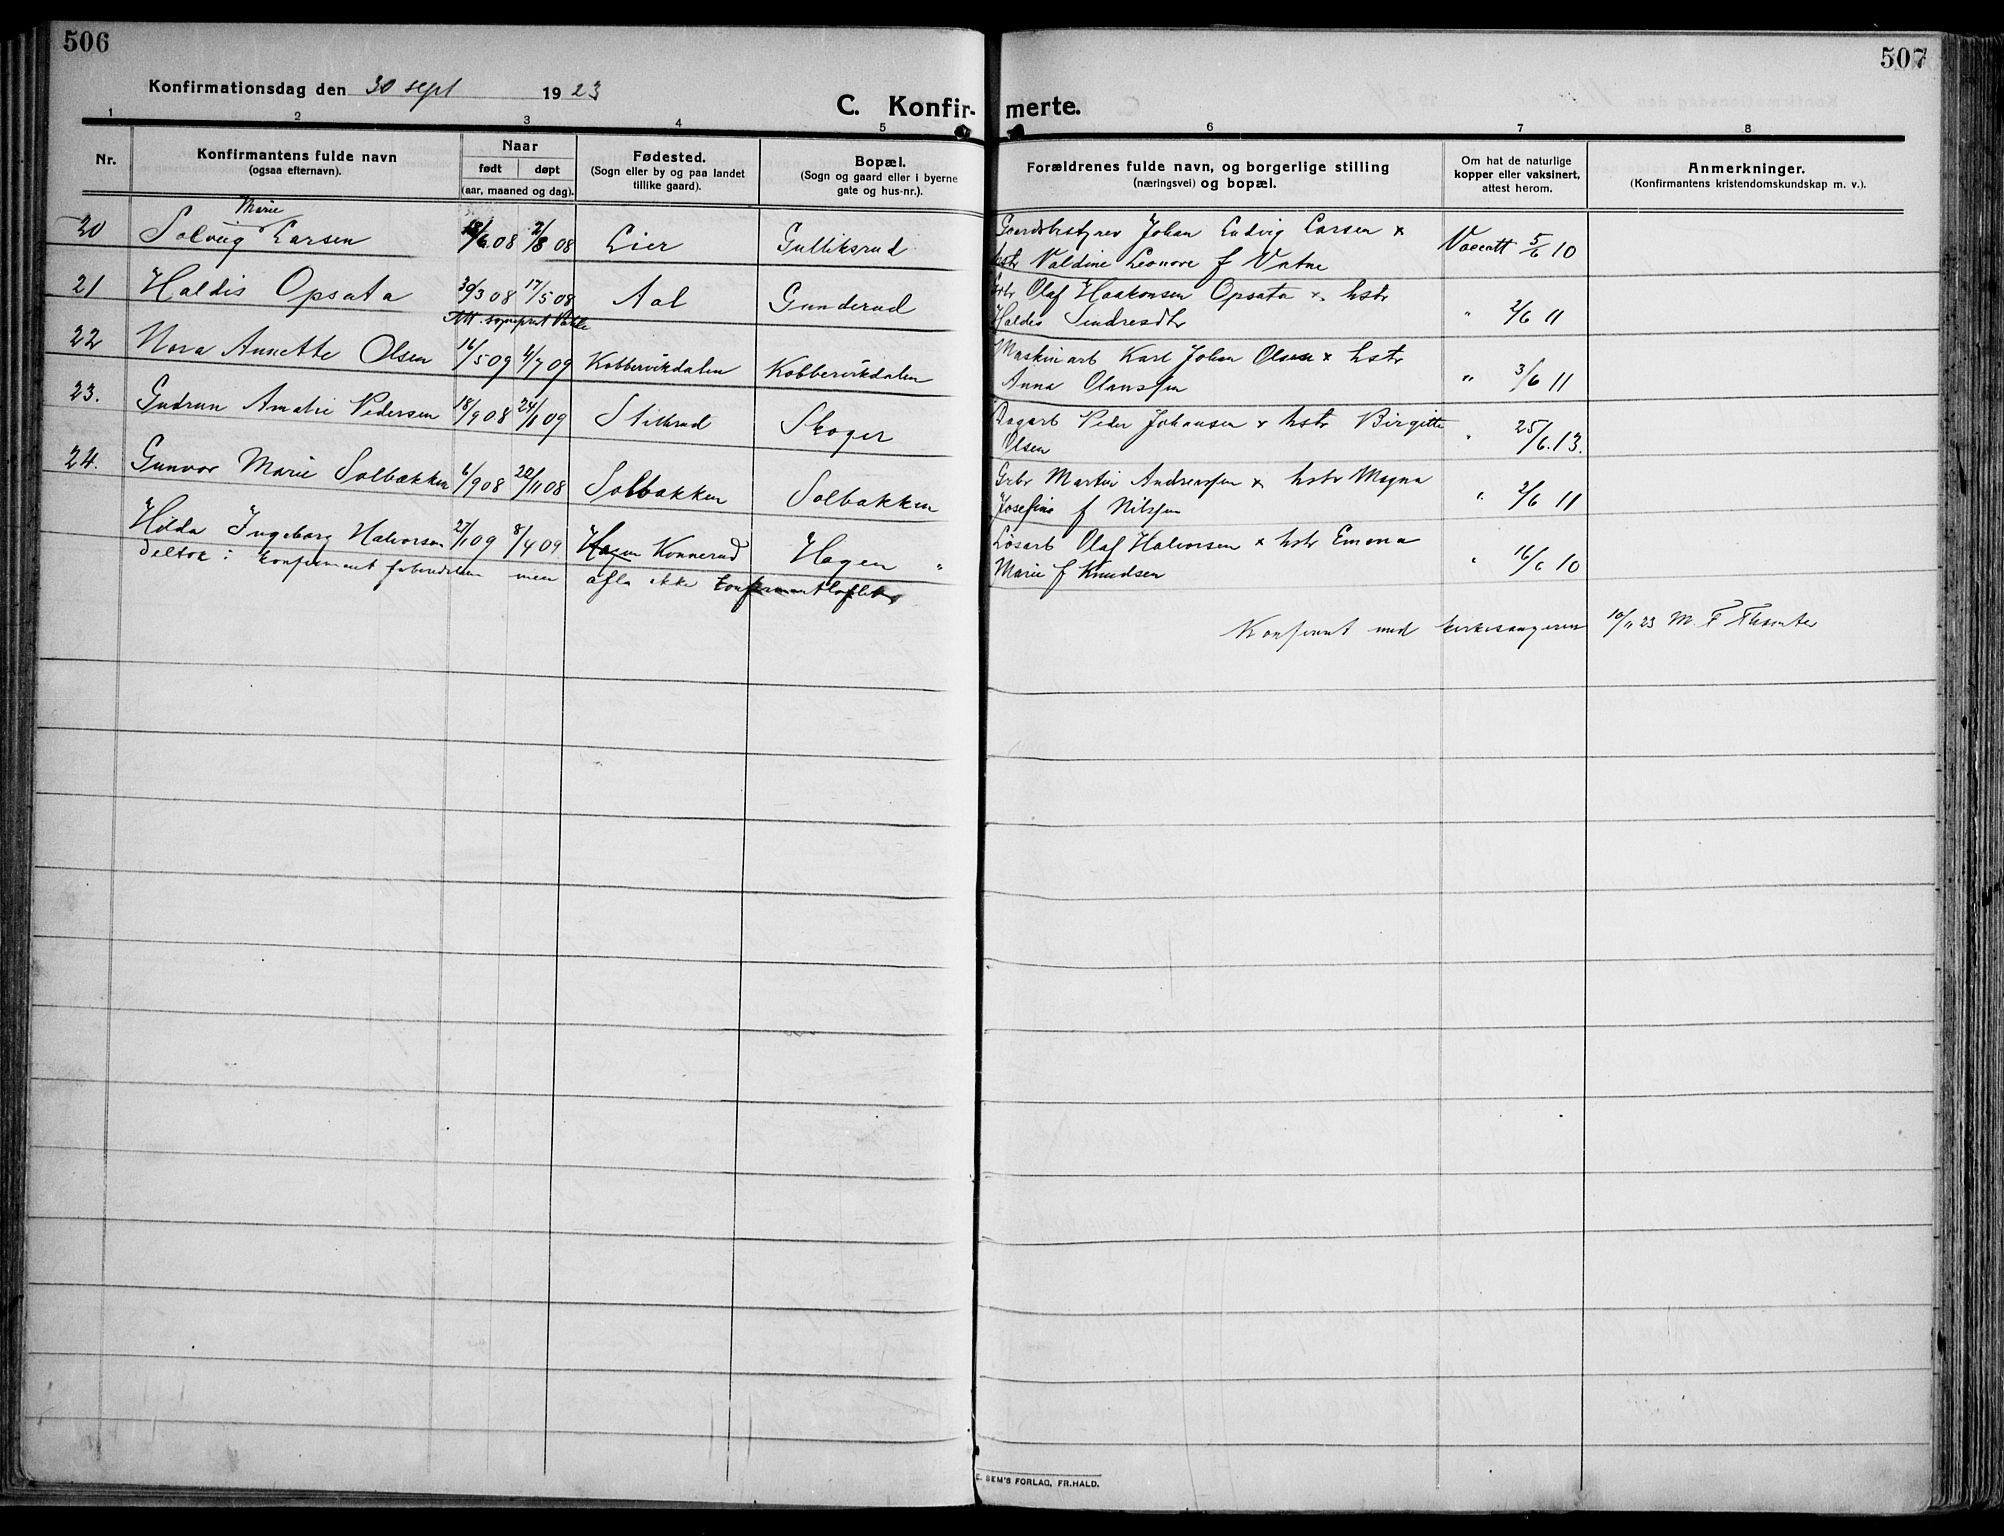 506
507
Konfirmationsdag den 30 sept 1923
C. Konfirmerte.
1 2 3 4 5 6 7 8
Nr.
Konfirmantens fulde navn
(ogsaa efternavn).
Naar
født døpt
(aar, maaned og dag).
Fødested.
(Sogn eller by og paa landet
tillike gaard).
Bopæl.
(Sogn og gaard eller i byerne
gate og hus-nr.).
Forældrenes fulde navn, og borgerlige stilling
(næringsvei) og bopæl.
Om hat de naturlige
kopper eller vaksinert,
attest herom.
Anmerkninger.
(Konfirmantens kristendomskundskap m. v.).
Marie
20 Solveig Larsen /6 08 2/8 08 Lier Gulliksrud Gaardsbestyrer Johan Ludvig Larsen x Vaccatt 5/6 10
hstr Valdine Leonore f Vatne
21 Haldis Opsata 30/3 08 17/5 08 Aal Gunderud Grbr Olaf Haakonsen Opsata x hstr " 2/6 11
Haldis Sindresdtr
Att. sogneprest
22 Nora Annette Olsen 16/5 09 4/7 09 Kobbervikdalen Kobbervikdalen Maskinarb Karl Johan Olsen x hstr " 3/6 11
Anna
23. Gudrun Amalie Pedersen 18/9 08 24/1 09 Skoger Dagarb Peder Johansen x hstr Birgitte " 25/6. 13.
Olsen
24. Gunvor Marie Solbakken 6/9 08 22/11 08 Solbakken Solbakken Grbr Martin Andreassen x hstr Magna " 2/6 11
Josefine f Nilssen
Hilda Ingeborg Halvorsen 27/1 09 8/4 09 Hagen Konnerud Hagen " Løsarb Olaf Halvorsen x hstr Emma " 16/6 10
Marie f Knudsen
deltok i konfirmant forberedelsen men afla ikke konfirmantløftet
Konfirmt med kirkesangeren 10/11 23 M. F
E. SEM'S FORLAG, FR.HALD.